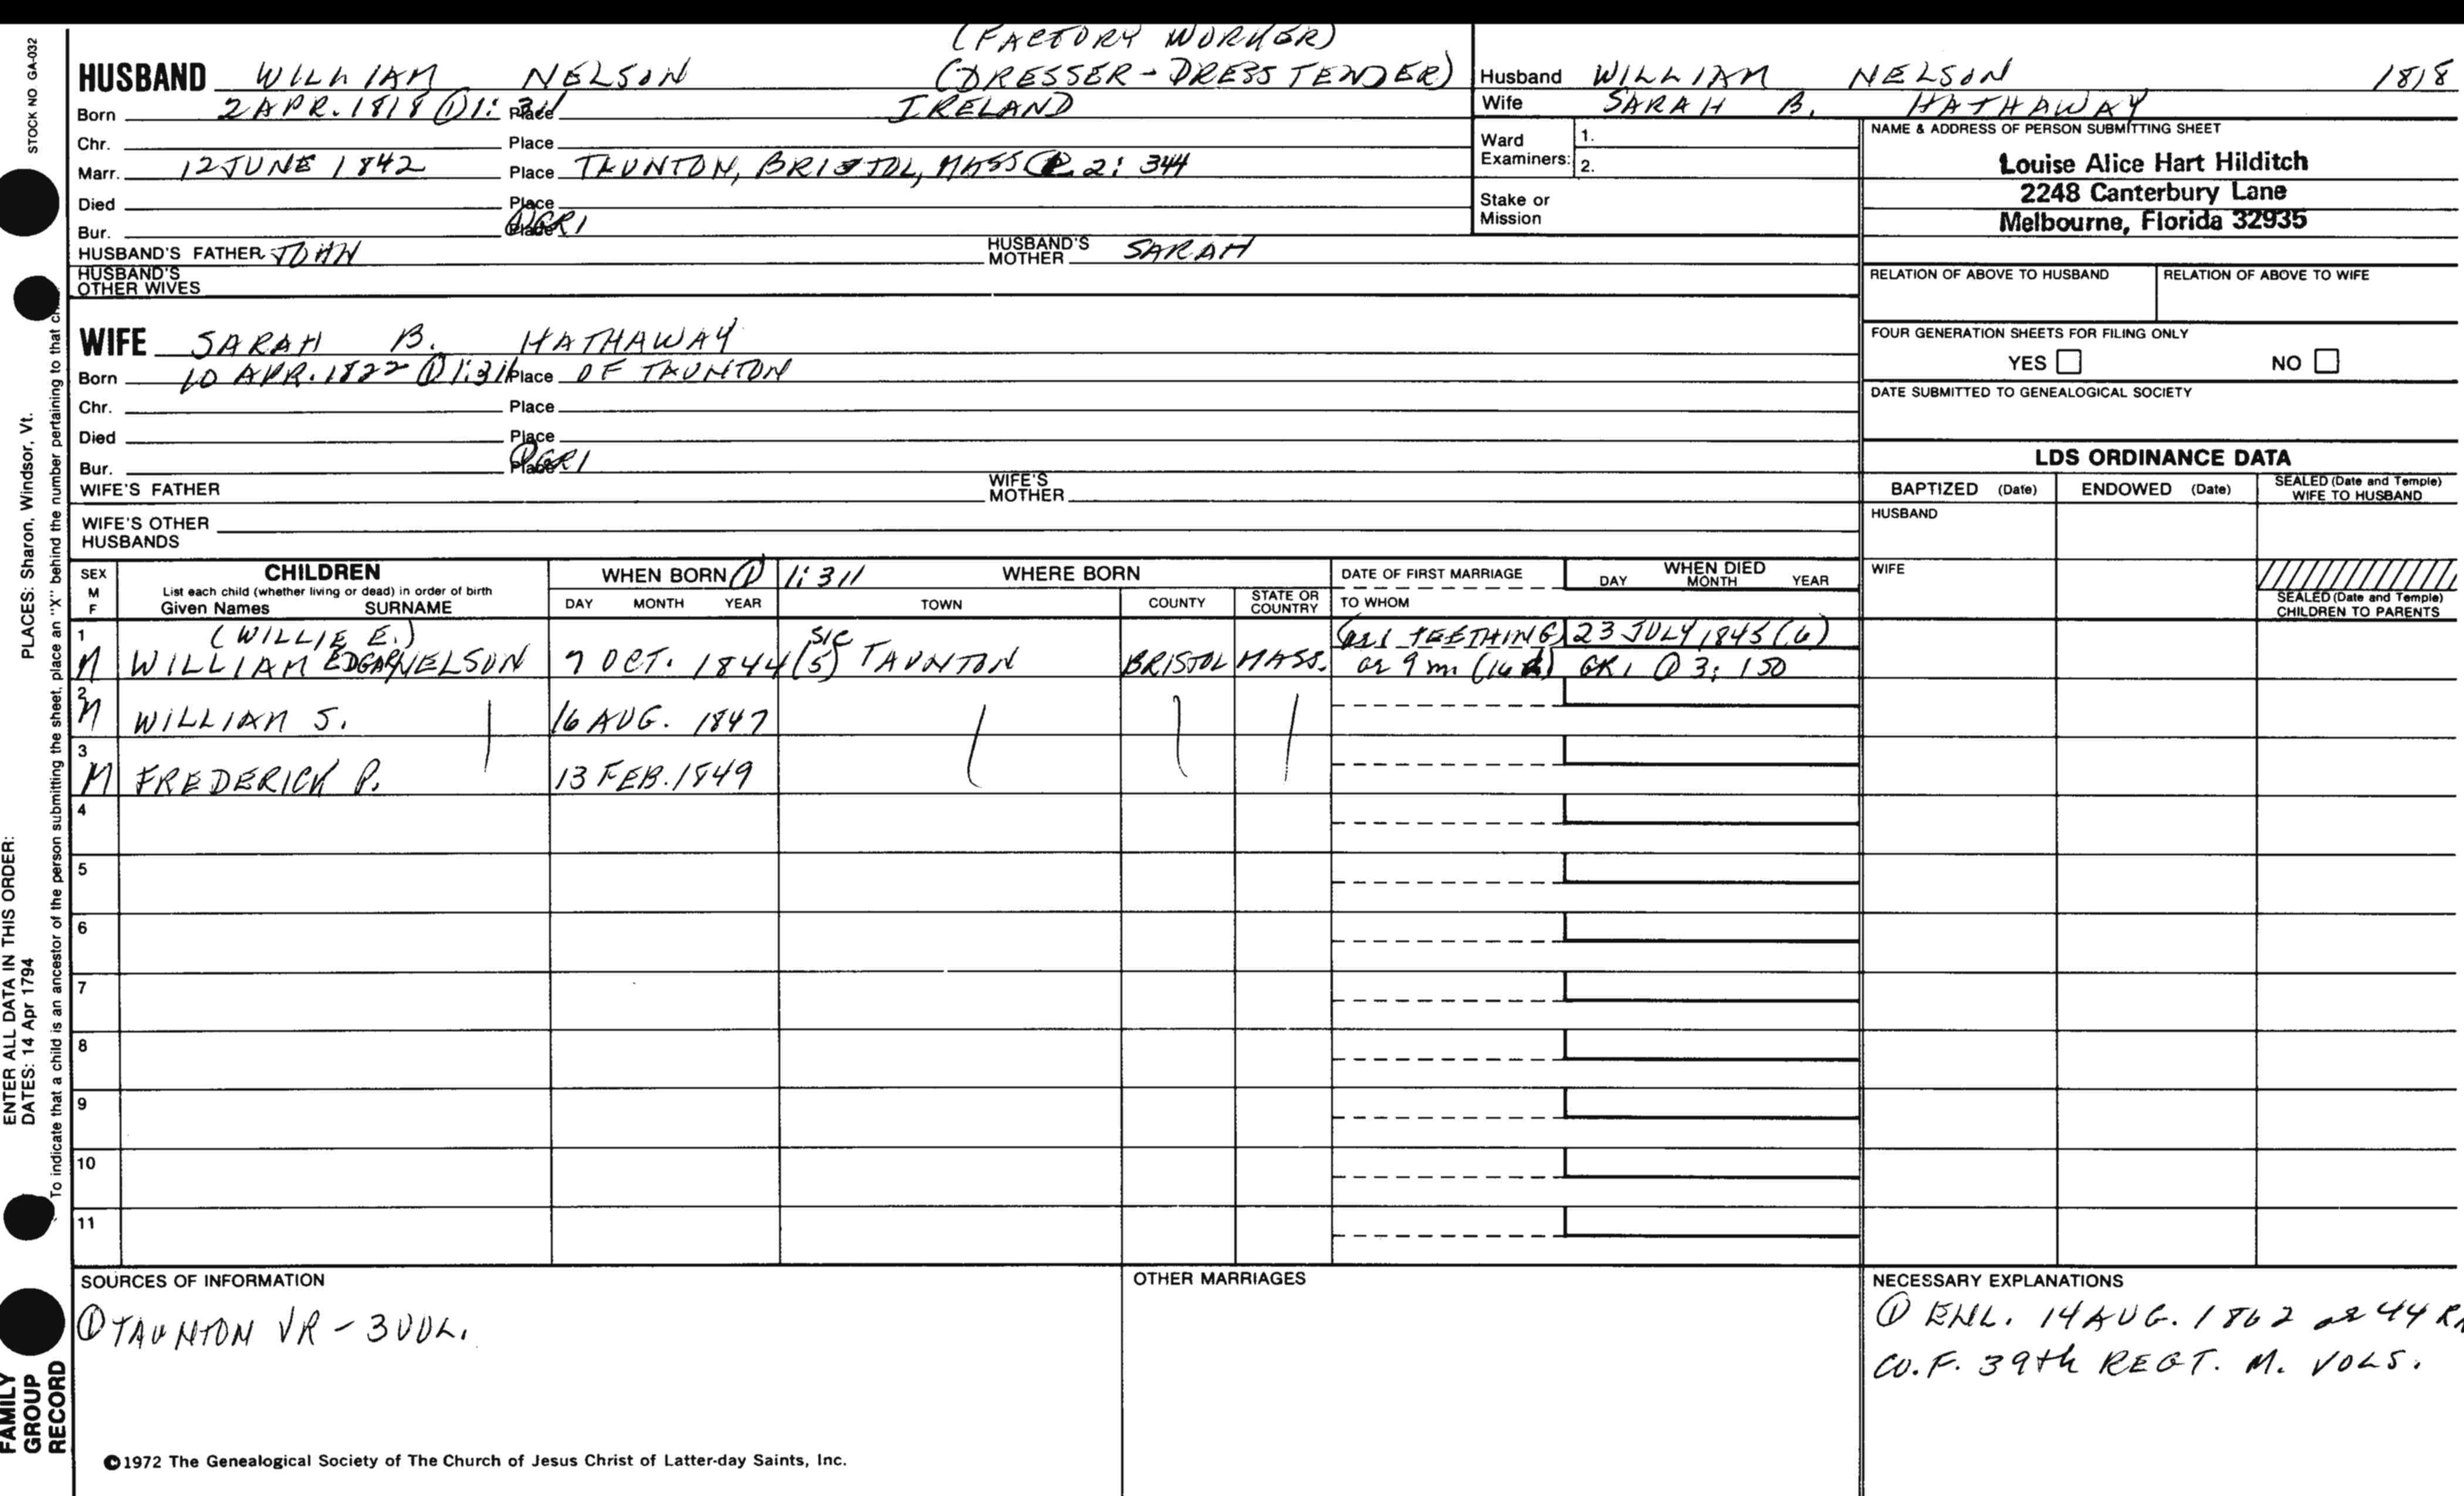 STOCK NO GA-032
(FACTORY WORKER)
HUSBAND WILLIAM NELSON (DRESSER - DRESS TENDER)
Born 2 APR. 1818 ① 1: Place IRELAND
Chr. Place
Marr. 12 JUNE 1842 Place TAUNTON, BRISTOL, MASS 2: 344
Died Place
Bur. Place GR1
HUSBAND'S FATHER JOHN HUSBAND'S MOTHER SARAH
HUSBAND'S OTHER WIVES
WIFE SARAH B. HATHAWAY
Born 10 APR. 1822 ① 1:311 Place OF TAUNTON
Chr. Place
Died Place
Bur. Place ① GR1
WIFE'S FATHER WIFE'S MOTHER
WIFE'S OTHER HUSBANDS
Husband WILLIAM NELSON 1818
Wife SARAH B. HATHAWAY
Ward Examiners: 1.
2.
Stake or Mission
NAME & ADDRESS OF PERSON SUBMITTING SHEET
Louise Alice Hart Hilditch
2248 Canterbury Lane
Melbourne, Florida 32935
RELATION OF ABOVE TO HUSBAND RELATION OF ABOVE TO WIFE
FOUR GENERATION SHEETS FOR FILING ONLY
YES NO
DATE SUBMITTED TO GENEALOGICAL SOCIETY
LDS ORDINANCE DATA
BAPTIZED (Date) ENDOWED (Date) SEALED (Date and Temple) WIFE TO HUSBAND
HUSBAND
WIFE
SEALED (Date and Temple) CHILDREN TO PARENTS
SEX M F
CHILDREN
List each child (whether living or dead) in order of birth
Given Names SURNAME
WHEN BORN ① 1:311 WHERE BORN
DAY MONTH YEAR TOWN COUNTY STATE OR COUNTRY
DATE OF FIRST MARRIAGE
TO WHOM
WHEN DIED
DAY MONTH YEAR
1 (WILLIE E.) SIC TEETHING) 23 JULY 1845 (6)
M WILLIAM EDGAR NELSON 7 OCT. 1844 (5) TAUNTON BRISTOL MASS. 9 m GR1 ① 3: 150
2 M WILLIAM S. 16 AUG. 1847
3 M FREDERICK P. 13 FEB. 1849
4
5
6
7
8
9
10
11
SOURCES OF INFORMATION
① TAUNTON VR - 3 VOL.
OTHER MARRIAGES
NECESSARY EXPLANATIONS
① ENL. 14 AUG. 1862 44
CO. F. 39th REGT. M. VOLS.
©1972 The Genealogical Society of The Church of Jesus Christ of Latter-day Saints, Inc.
FAMILY GROUP RECORD
ENTER ALL DATA IN THIS ORDER:
DATES: 14 Apr 1794
PLACES: Sharon, Windsor, Vt.
To indicate that a child is an ancestor of the person submitting the sheet, place an "X" behind the number pertaining to that